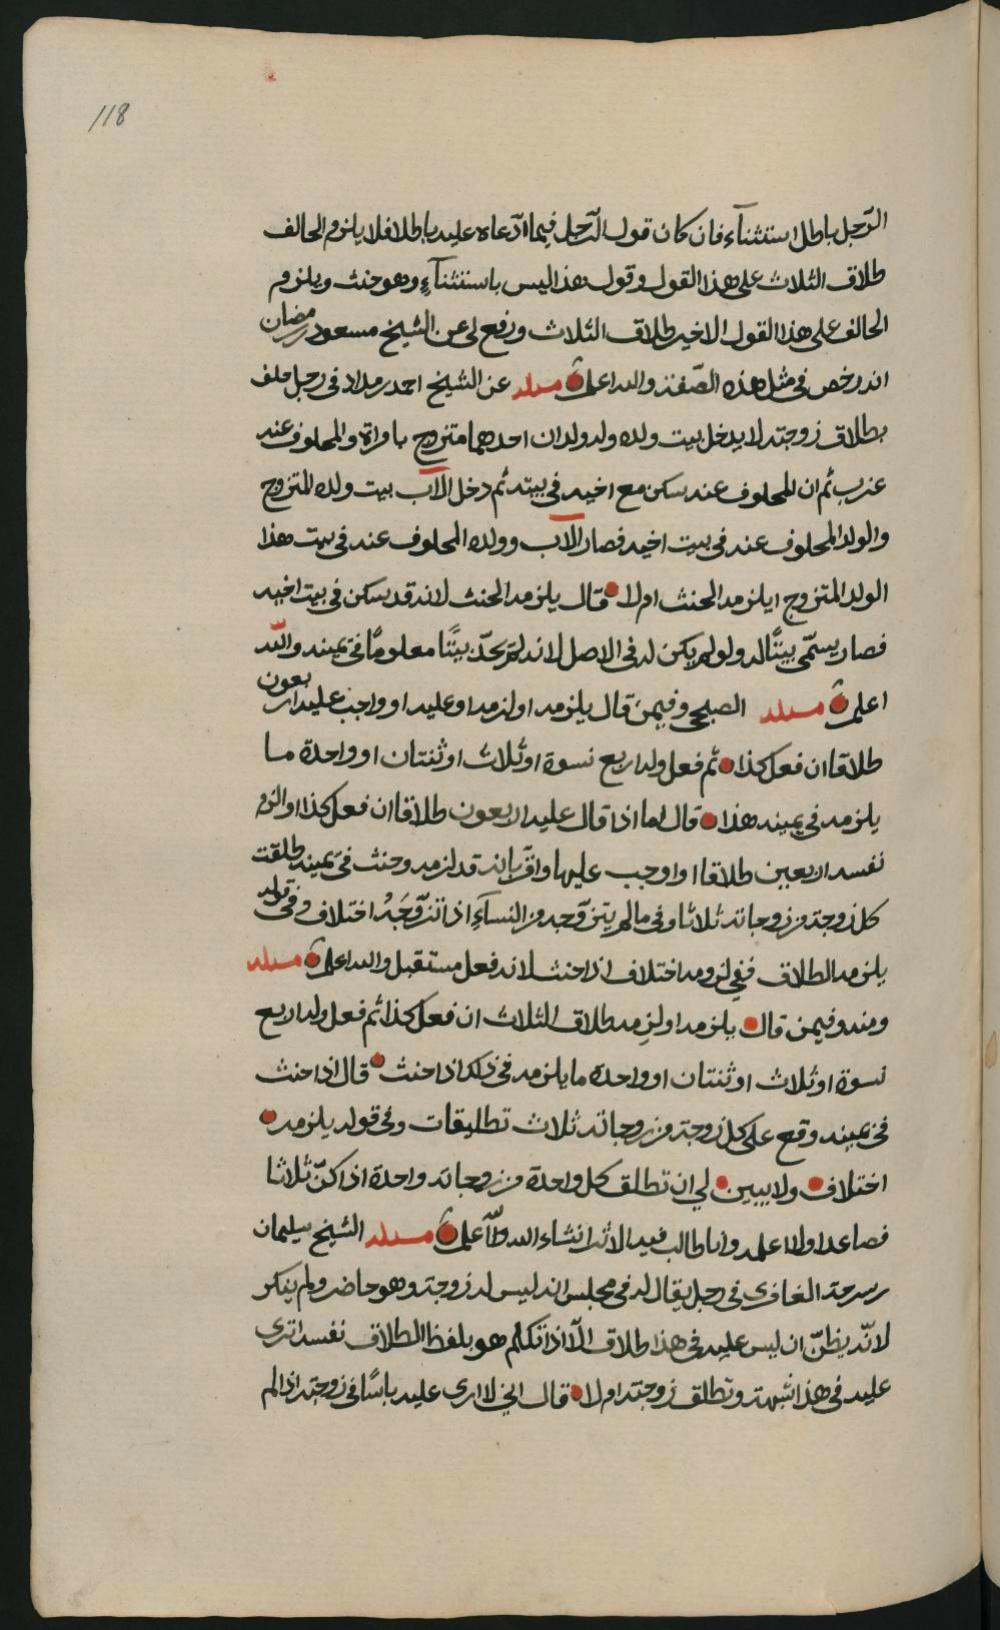 118
الرّجل باطل استثنآء فان كان قول الرّجل فيما ادّعاه عليه باطلا فلا يلزم الحالف
طلاق الثلاث على هذا القول وقول هذا ليس باستثنآءٍ وهو حنث ويلزم
الحالف على هذا القول الاخير طلاق الثلاث ورفع لى عن الشيخ مسعود رمضان
انه رخص في مثل هذه الصّفة والله اعلم مسئلة عن الشيخ احمد مداد في رجل حلف
بطلاق زوجته لا يدخل بيت ولده وله ولدان احدهما متزوج بامراة والمحلوف عنه
عزب ثم ان المحلوف عنه سكن مع اخيه في بيته ثم دخل الاب بيت ولده المتزوج
والولد المحلوف عنه في بيت اخيه فصار الاب وولده المحلوف عنه في بيت هذا
الولد المتزوج ايلزمه الحنث ام لا قال يلزمه الحنث لانه قد سكن في بيت اخيه
فصار يسمّى بيتًا له ولو لم يكن له في الاصل لانه لم يحدّ بيتًا معلومًا في يمينه والله
اعلم مسئلة الصبحي وفيمن قال يلزمه او لزمه او عليه او واجب عليه اربعون
طلاقا ان فعل كذا ثم فعل وله اربع نسوة او ثلاث او ثنتان او واحدة ما
يلزمه في يمينه هذا قال اما اذا قال عليه اربعون طلاقا ان فعل كذا او الزم
نفسه اربعين طلاقا او اوجب عليها واقرّ بانه قد لزمه وحنث في يمينه طلقت
كل زوجة من زوجاته ثلاثا وفي ما لم يتزوّجه من النسآء اذا تزوّجَهُ اختلاف وفي قوله
يلزمه الطلاق ففي لزومه اختلاف اذا حنث لانه فعل مستقبل والله اعلم مسئلة
ومنه وفيمن قال يلزمه او لزمه طلاق الثلاث ان فعل كذا ثم فعل وله اربع
نسوة او ثلاث او ثنتان او واحدة ما يلزمه في ذلك اذا حنث قال اذا حنث
في يمينه وقع على كل زوجة من زوجاته ثلاث تطليقات وفي قوله يلزمه
اختلاف ولا يبين لي ان تطلق كل واحدة من زوجاته واحدة اذا كنّ ثلاثا
فصاعدا وانا طالب فيه الاثر انشاء الله والله اعلم مسئلة الشيخ سليمان
في رجل يقال له في مجلس انه ليس له زوجة وهو حاضر ولم ينكر
لانّه يظنّ ان ليس عليه في هذا طلاق الّا اذا تكلم هو بلفظ الطلاق نفسه اترى
عليه في هذا شبهة وتطلق زوجته ام لا قال اني لا ارى عليه باسًا في زوجته اذا لم